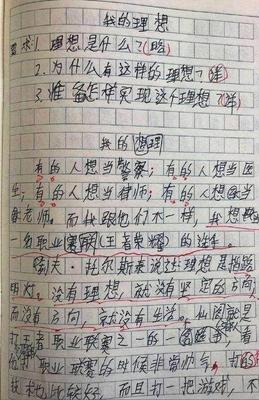 我的理想
要求1.理想是什么?(略)
2.为什么有这样的理想?(详)
3.准备怎样实现这个理想?(详)
我的理想
有的人想当警察;有的人想当医
生;有的人想当律师;有的人想当
老师。而我跟他们不一样,我想
一名职业联赛《王者荣耀》的选手。
列夫·托尔斯泰说过:理想是指路
明灯。没有理想,就没有坚定的方向;
而没有方向,就没有生活。
打王者职业联赛之一的 看
他打职业联赛的时候非常帅气,打的
技术也比较好,而且打一把游戏,不